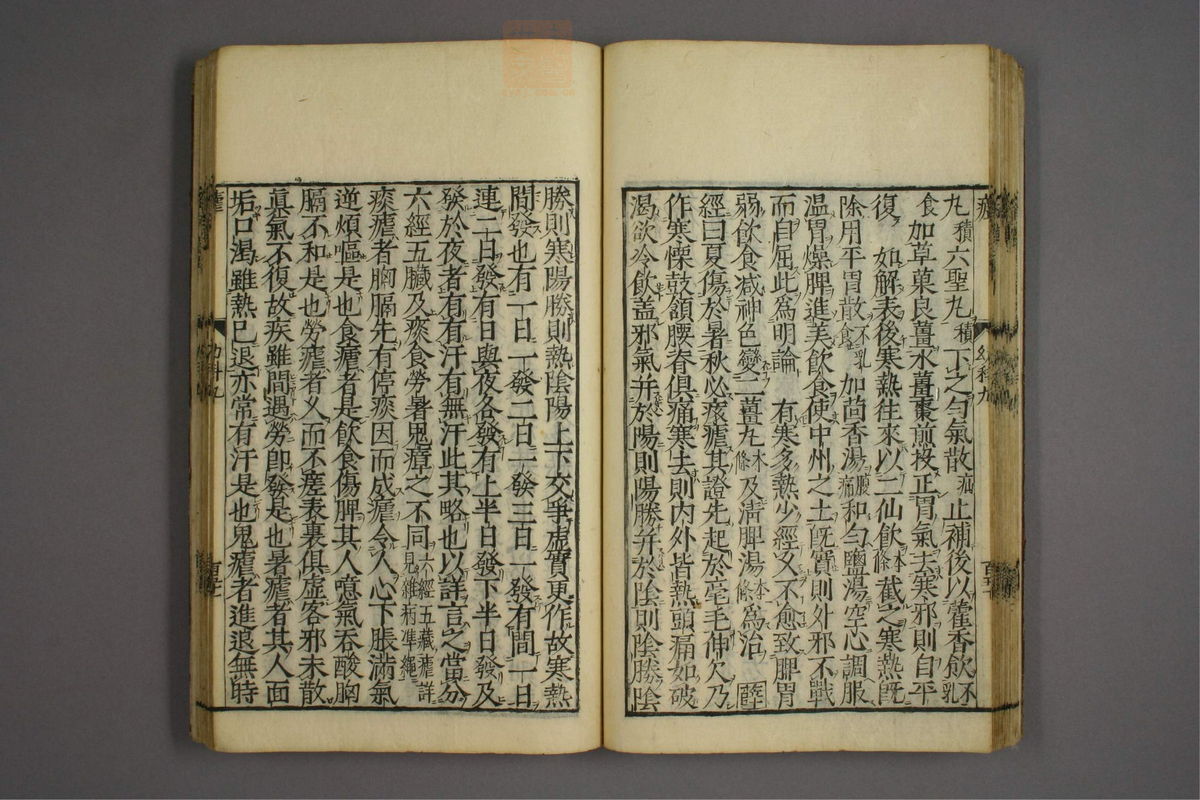 丸積六聖丸積下之勻氣散疝止補後以藿香飲不乳
食如草菓良薑水薑棗煎投正胃氣去寒邪則自平
復 如解表後寒熱往來以二仙飲本條截之寒熱既
除用平胃散不乳食加茴香湯腹痛和勻鹽湯空心調服
温胃燥脾進美飲食使中州之土既實則外邪不戰
而自屈此爲明論 有寒多熱少經久不愈致脾胃
弱飲食減神色變二薑丸本條及淸脾湯本條爲治 薛
經曰夏傷於暑秋必痎瘧其證先起於毫毛伸欠乃
作寒慄鼓頷腰脊俱痛寒去則内外皆熱頭痛如破
渴欲冷飲盖邪氣并於陽則陽勝并於陰則陰勝陰
勝則寒陽勝則熱陰陽上下交爭虛實更作故寒熱
間發也有一日一發二日一發三日一發有間一日
連二日發有日與夜各發有上半日發下半日發及
發於夜者有有汗有無汗此其略也以詳言之當分
六經五臟及痰食勞暑鬼瘴之不同六經五藏瘧詳見雜病準繩
痰瘧者胸膈先有停痰因而成瘧令人心下脹滿氣
逆煩嘔是也食瘧者是飲食傷脾其人噫氣吞酸胸
膈不和是也勞瘧者久而不瘥表裏俱虛客邪未散
眞氣不復故疾雖間遇勞即發是也暑瘧者其人面
垢口渴雖熱已退亦常有汗是也鬼瘧者進退無時
瘧 幼科九